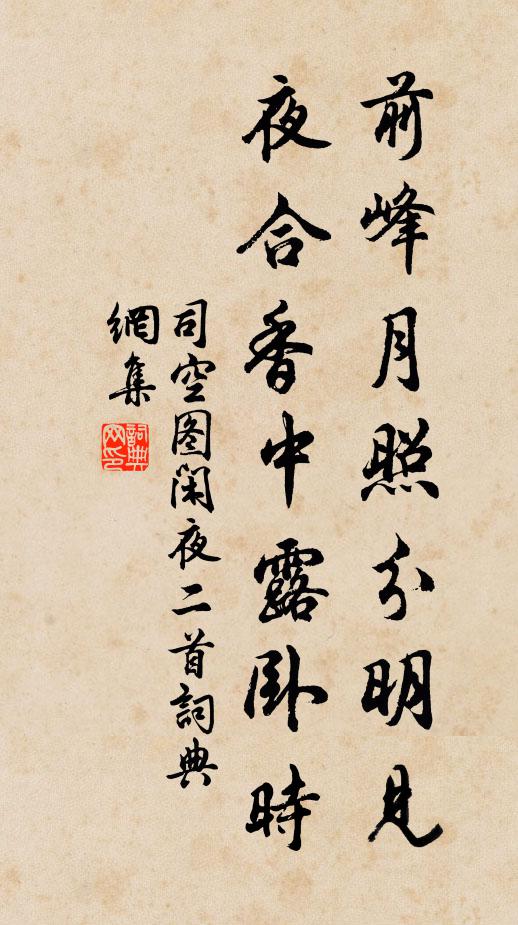 前峰月照分明見
夜合香中露卧時
司空图閑夜二首詞典
網集
詞典网印